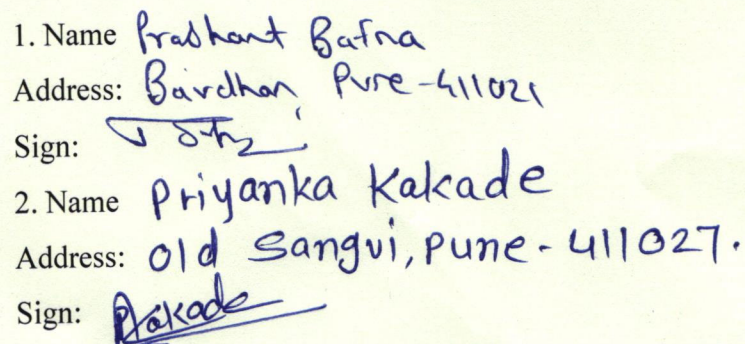 1. Name Prashant Bafna
Address: Bavdhan, Pune-411021
Sign:
2. Name Priyanka Kakade
Address: Old Sangvi, Pune-411027.
Sign: PKakade